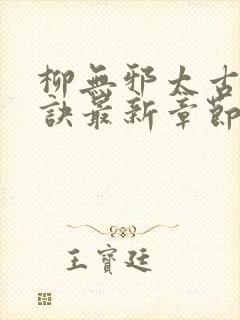 柳無邪太古
訣最新章節
王寶廷